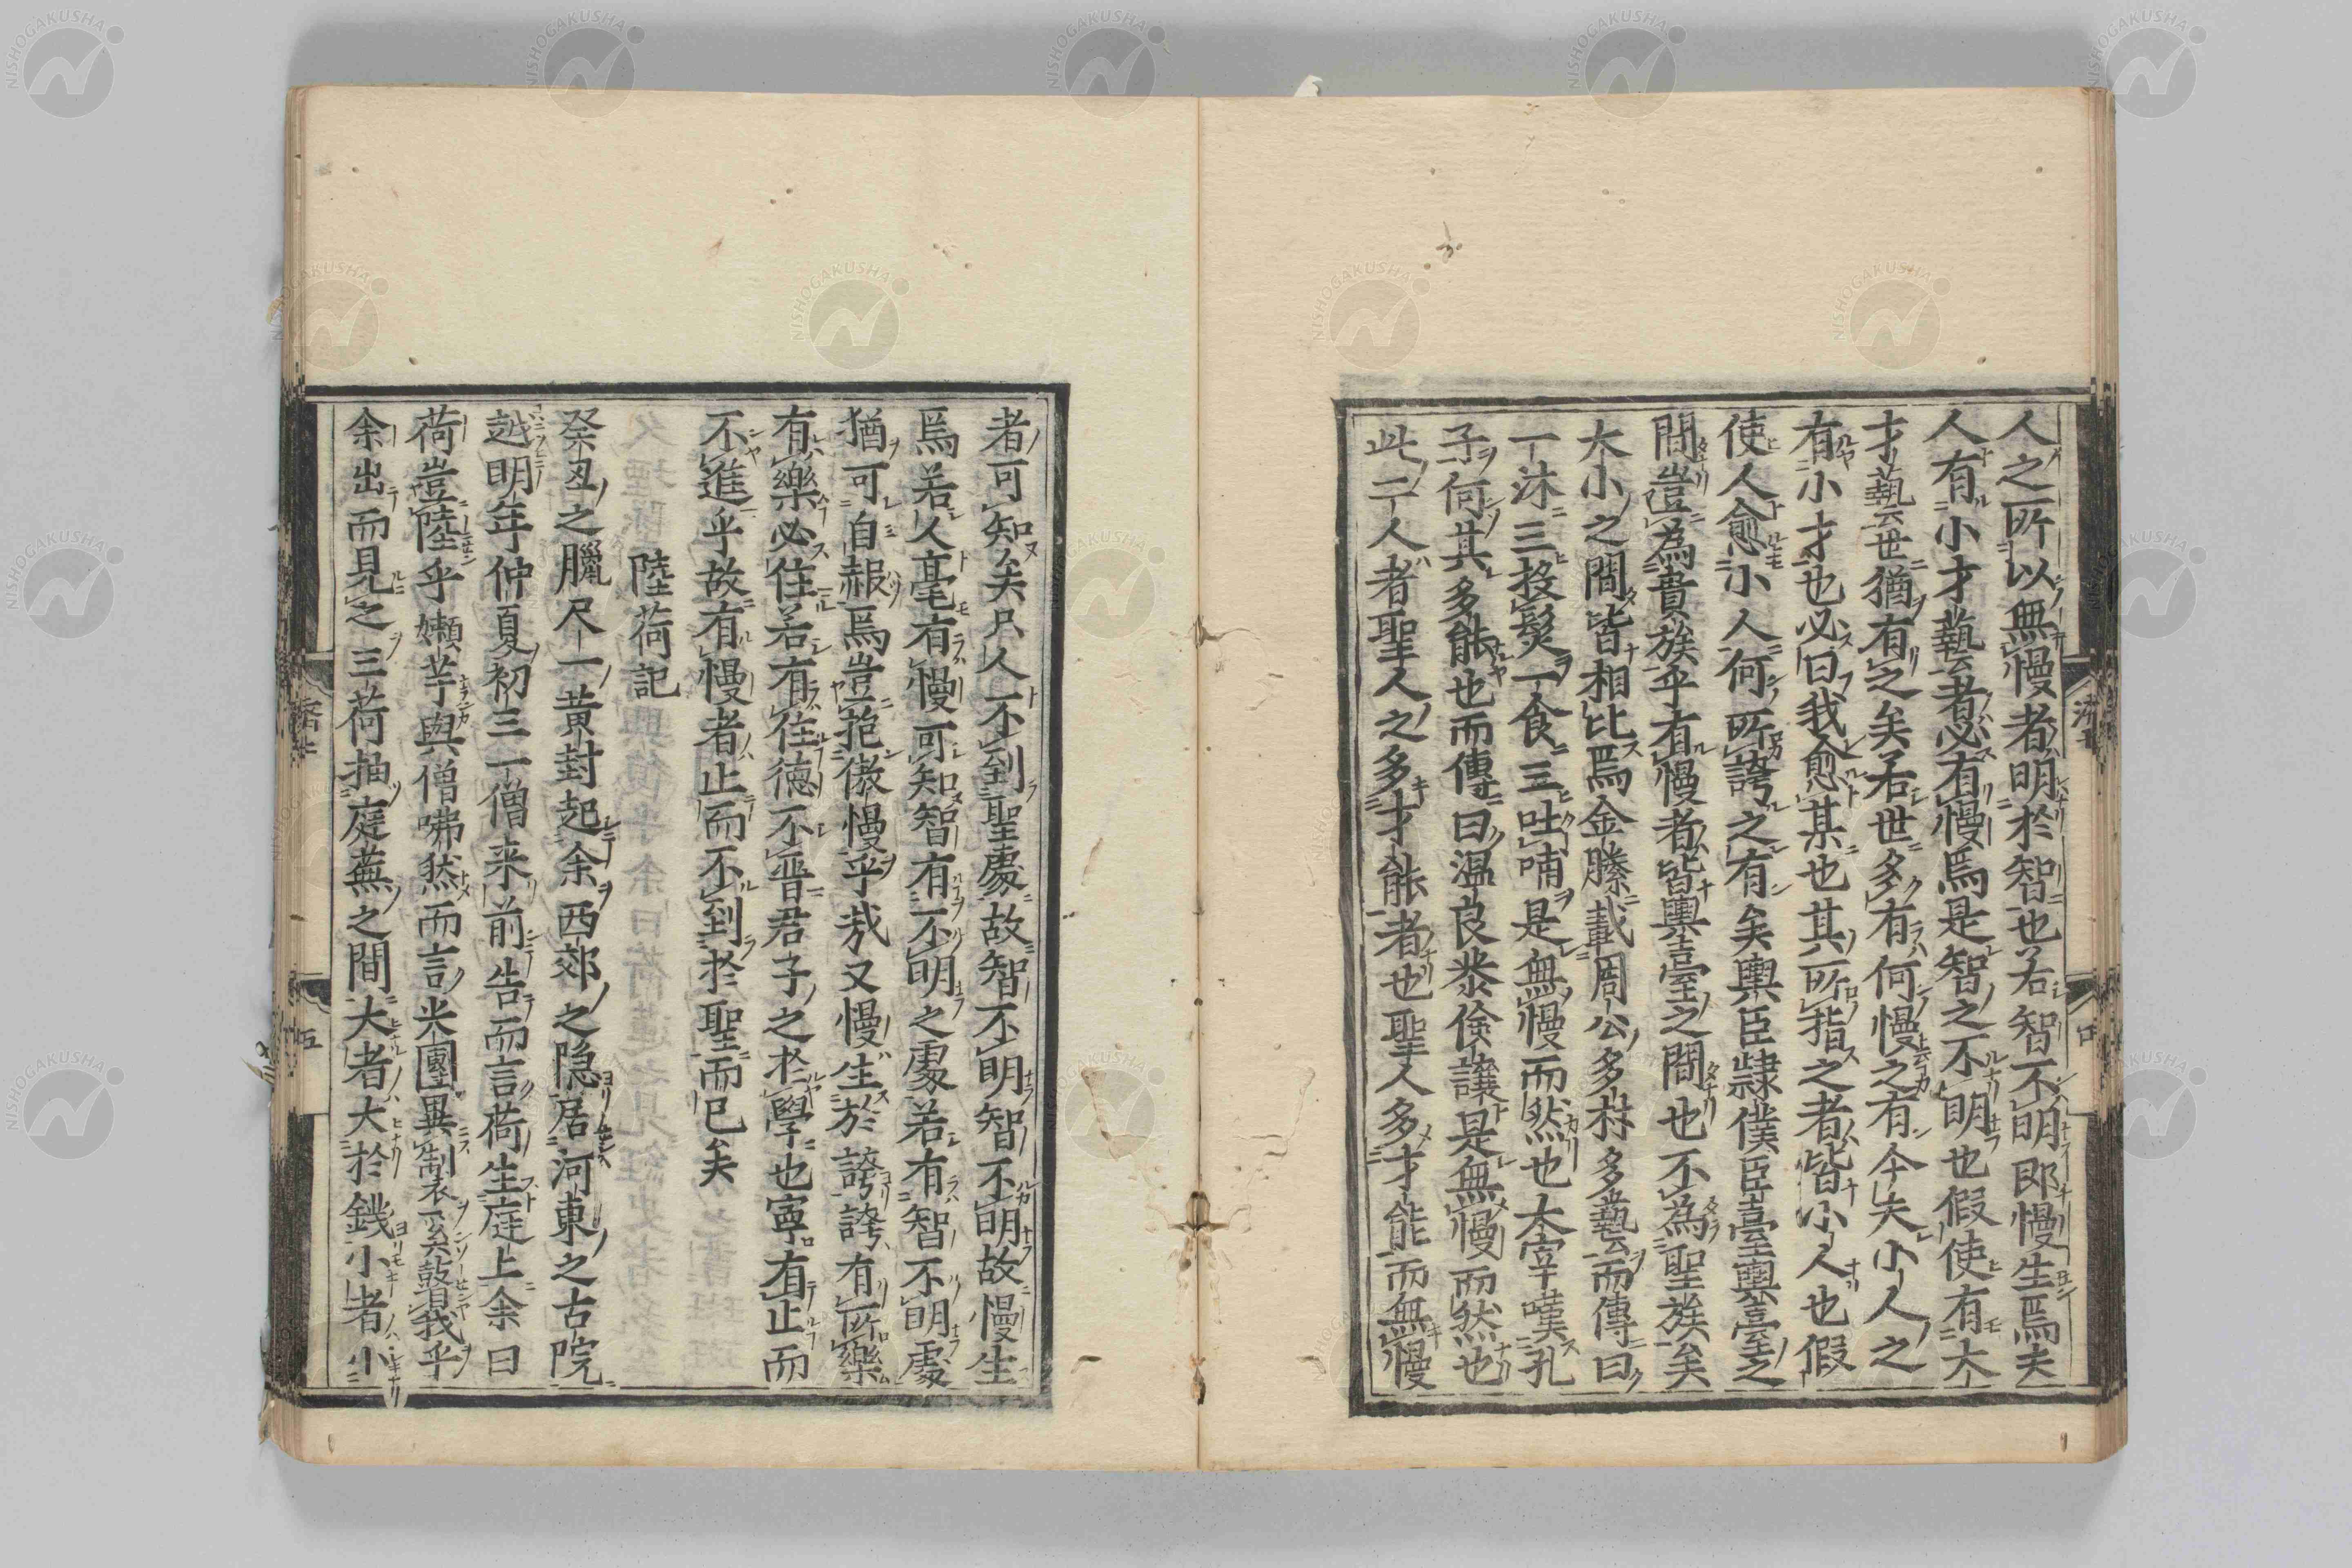 人之所以無慢者明於智也若智不明即慢生焉夫
人有小才藝者必有慢焉是智之不明也假使有大
才藝世猶有之矣若世多有何慢之有今夫小人之
有小才也必曰我愈某也其所指之者皆小人也假
使人愈小人何所誇之有矣輿臣隷僕臣臺輿臺之
間豈為貴族乎有慢者皆輿臺之間也不為聖族矣
大小之間皆相比焉金縢載周公多材多藝而傳曰
一沐三投髮一食三吐哺是無慢而然也太宰嘆孔
子何其多能也而傳曰温良恭儉讓是無慢而然也
此二人者聖人之多才能者也聖人多才能而無慢
者可知矣只人不到聖處故智不明智不明故慢生
焉若人毫有慢可知智有不明之處若有智不明處
猶可自赧焉豈抱傲慢乎哉又慢生於誇誇有所樂
有樂必住若有住德不晋君子之於學也寧有止而
不進乎故有慢者止而不到於聖而已矣
陸荷記
癸丑之臘尺一黄封起余西郊之隠居河東之古院
越明年仲夏初三一僧来前告而言荷生庭上余曰
荷豈陸乎嬾芋與僧咈然而言米團異製表奚鼓我乎
余出而見之三荷抽庭蕪之間大者大於錢小者小